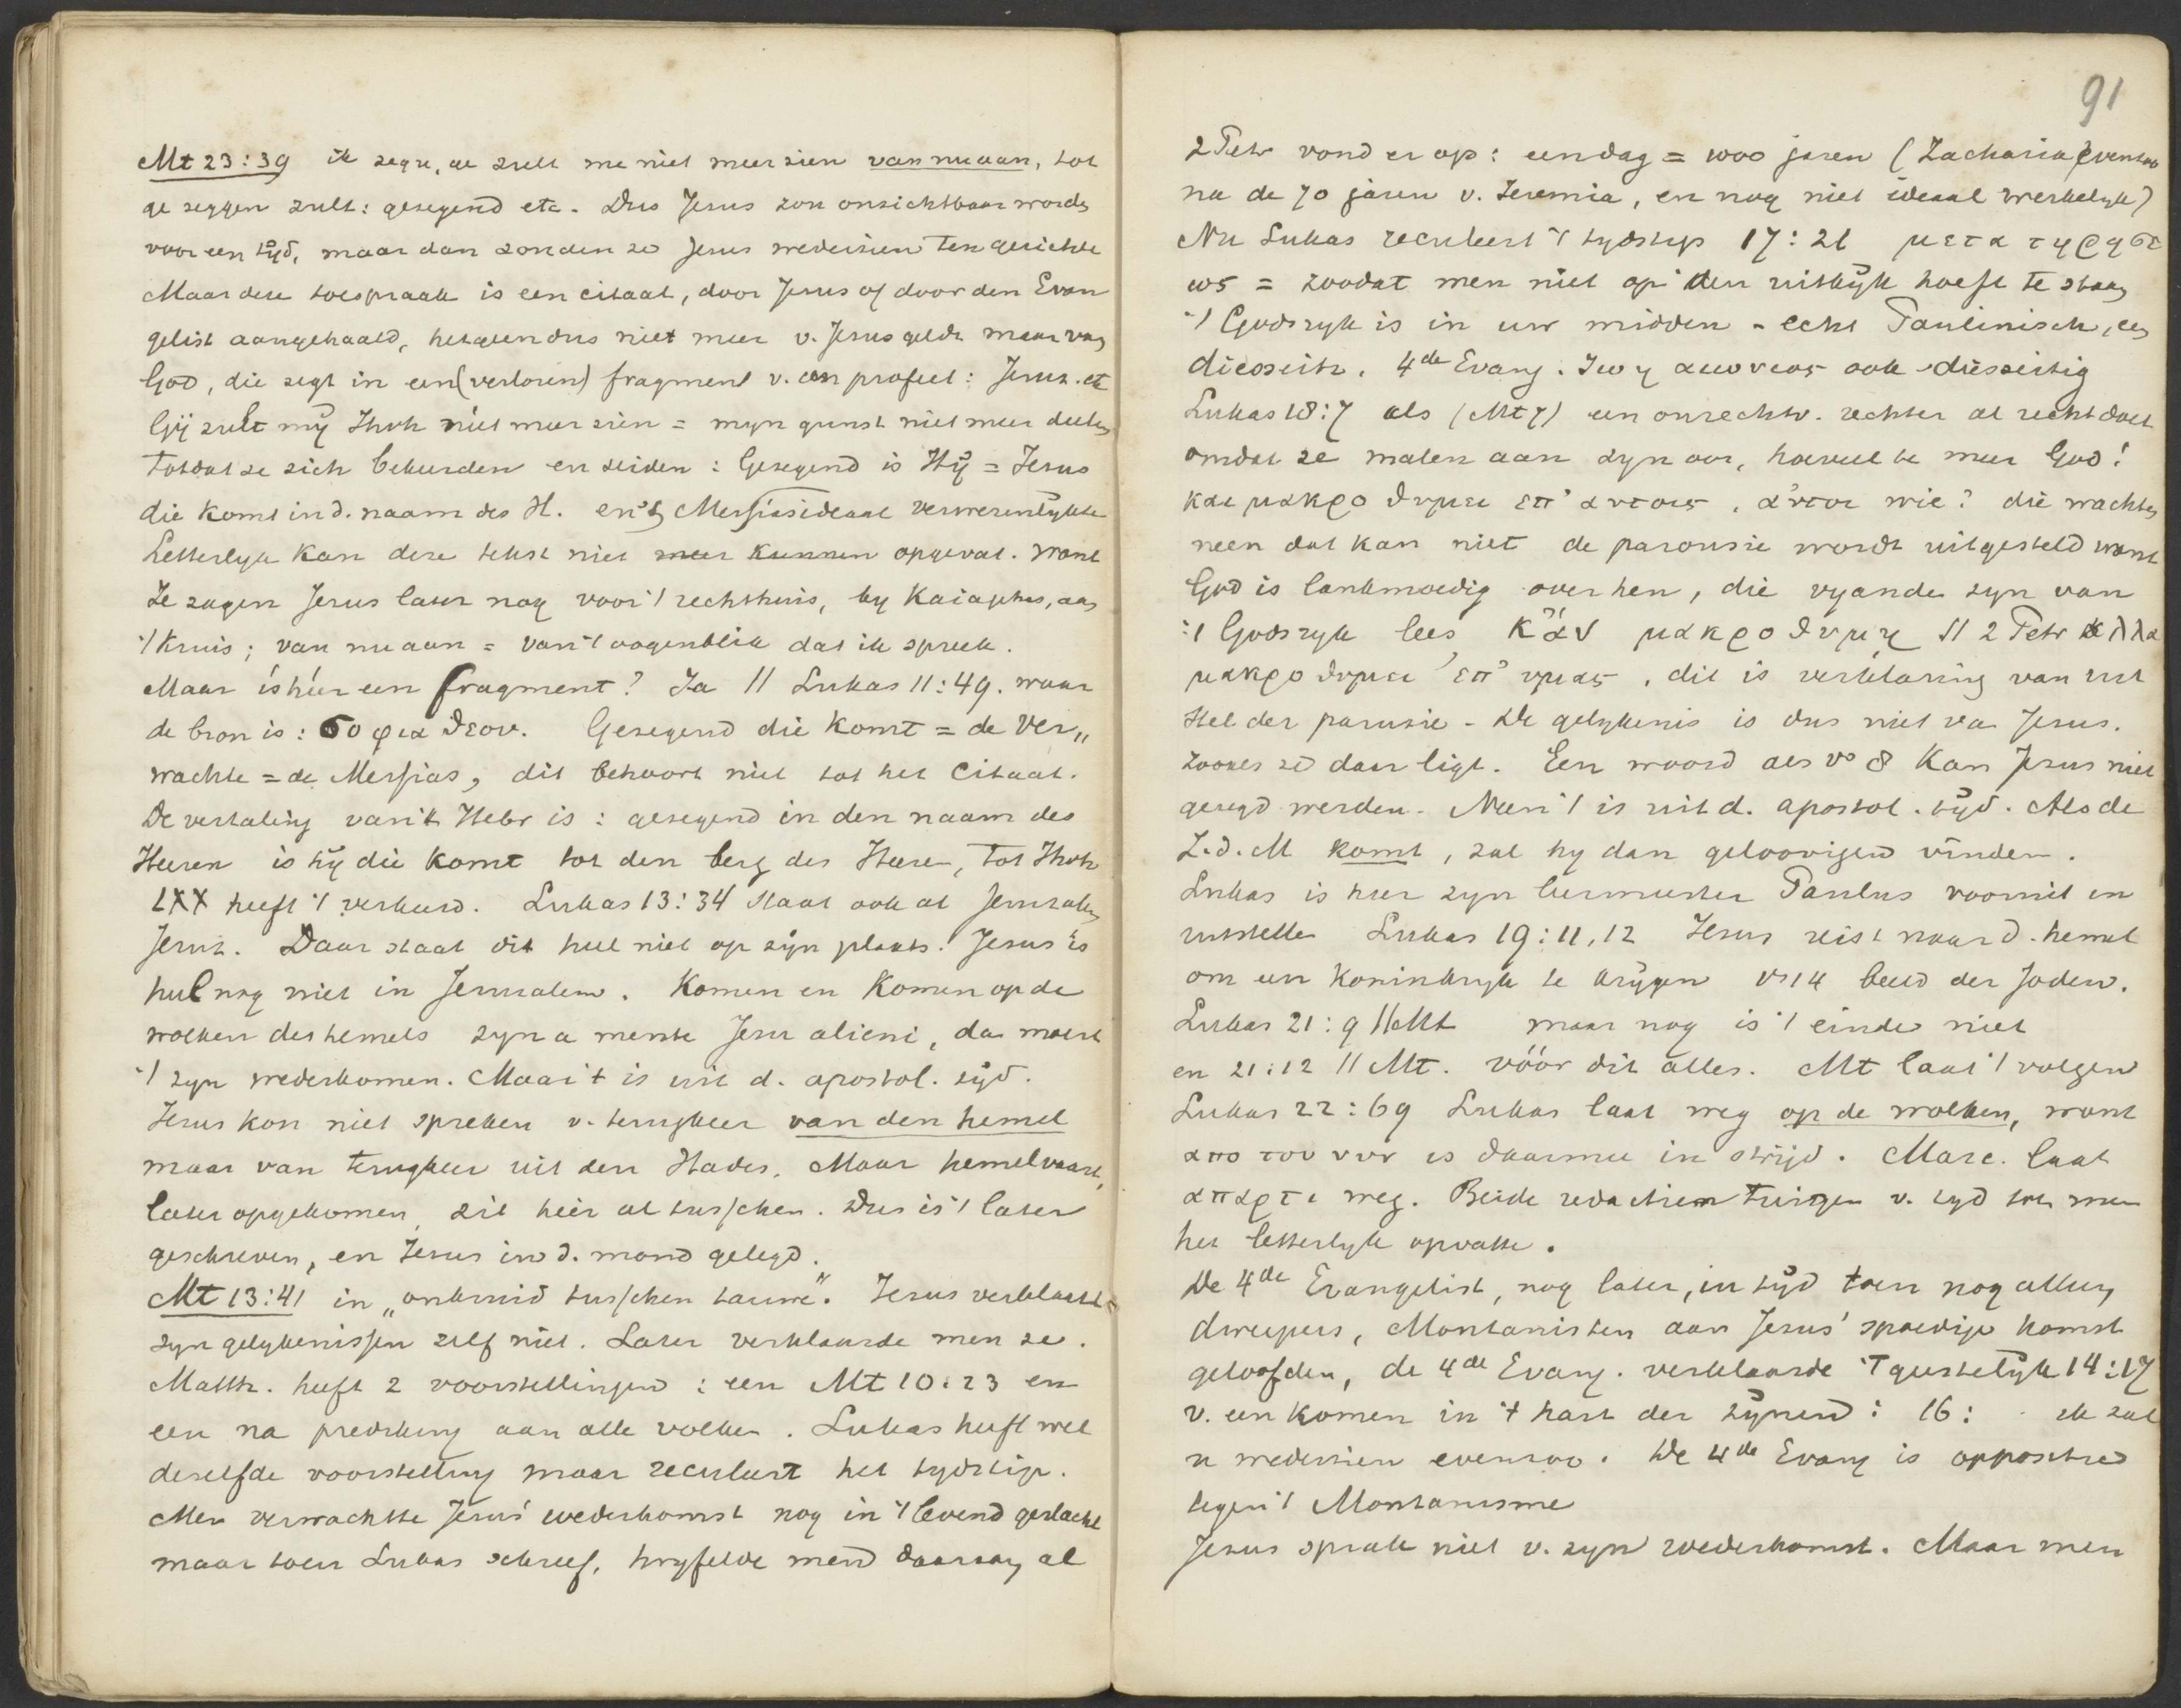 Mt 23:39 ik zegu, ge zult me niet meer zien van nu aan, tot
ge zeggen zult: gezegend etc. Dus Jesus zou onzichtbaar worden
voor een tijd, maar dan zouden ze Jesus wederzien ten gerichte
Maar deze toespraak is een citaat, door Jesus of door den Evan
gelist aangehaald, hetgeen dus niet meer v. Jesus geldt maar van
God, die zegt in een (verloren) fragment v. een profeet: Jeruz. etc
Gij zult mij Jhvh niet meer zien = mijn gunst niet meer deelen
totdat ze zich bekeerden en zeiden: Gezegend is Hij = Jesus
die komt in d. naam des H. en 't Messiasideaal verwezenlijkte
Letterlijk kan deze tekst niet meer kunnen opgevat. want
Ze zagen Jesus later nog voor 't rechthuis, by Kaiaphas, aan
't kruis; van nu aan = van 't oogenblik dat ik spreek.
Maar is híer een fragment? Ja // Lukas 11:49. waar
de bron is: σοφια θεου. Gezegend die komt = de Ver„
wachte = de Messias, dit behoort niet tot het Citaat.
De vertaling van 't Hebr is: gezegend in den naam des
Heeren is hij die komt tot den berg des Heeren, tot Jhvh
LXX heeft 't verkeerd. Lukas 13:34 staat ook al Jeruzalem
Jeruz. Daar staat dit heel niet op zijn plaats. Jesus is
heel nog niet in Jeruzalem. Komen en Komen op de
wolken des hemels zyn a mente Jesu alieni, dan moest
't zyn wederkomen. Maar 't is uit d. apostol. tijd.
Jezus kon niet spreken v. terugkeer van den hemel
maar van terugkeer uit den Hades. Maar hemelvaart,
later opgekomen, zit hier al tusschen. Dus is 't later
geschreven, en Jezus in d. mond gelegd.
Mt 13:41 in „onkruid tusschen tarwe". Jesus verklaarde
zyn gelykenissen zelf niet. Later verklaarde men ze.
Matth. heeft 2 voorstellingen: een Mt 10:23 en
een na prediking aan alle volken. Lukas heeft wel
dezelfde voorstelling maar reculeert het tydstip.
Men verwachtte Jesus' wederkomst nog in 't levend geslacht
maar toen Lukas schreef, twyfelde men daaraan al
91
2 Petr vond er op: een dag = 1000 jaren (Zacharia evenzoo
na de 70 jaren v. Jeremia, en nog niet ideaal werkelyk)
Nu Lukas reculeert 't tydstip 17:21 μετα τηρησε
ως = zoodat men niet op den uitkijk hoeft te staan
't Godsryk is in uw midden - echt Paulinisch, een
diesseits. 4de Evang. ζωη αιωνιος ook diesseitig
Lukas 18:7 als (Mt 7) een onrechtv. rechter al recht doet
omdat ze malen aan zyn oor, hoeveel te meer God!
και μακροθυμει επ' αυτοις, αυτοι wie? die wachten
neen dat kan niet de parousie wordt uitgesteld want
God is lankmoedig over hen, die vyanden zyn van
't Godsryk lees κἂν μακροθυμῃ // 2 Petr αλλα
μακροθυμει επ' υμας, dit is verklaring van uit
stel der parusie - De gelykenis is dus niet van Jesus.
zooals ze daar ligt. Een woord als vs 8 kan Jesus niet
gezegd werden. Neen 't is uit d. apostol. tijd. Als de
Z.d.M komt, zal hy dan geloovigen vinden.
Lukas is hier zyn leermeester Paulus vooruit in
uitstellen Lukas 19:11,12 Jezus reist naar d. hemel
om een koninkryk te krijgen vs 14 beeld der Joden.
Lukas 21:9 // Mt maar nog is 't einde niet
en 21:12 // Mt. vóór dit alles. Mt laat 't volgen
Lukas 22:69 Lukas laat weg op de wolken, want
απο του νυν is daarmee in strijd. Marc. laat
απαρτι weg. Beide redactien tuigen v. tyd toen men
het letterlyk opvatte.
De 4de Evangelist, nog later, in tijd toen nog alleen
dweepers, Montanisten aan Jesus' spoedige komst
geloofden, de 4de Evang. verklaarde 't geestelijk 14:17
v. een komen in 't hart der zijnen: 16: ik zal
u wederzien evenzoo. De 4de Evang is oppositie
tegen 't Montanisme
Jezus sprak niet v. zyn wederkomst. Maar men